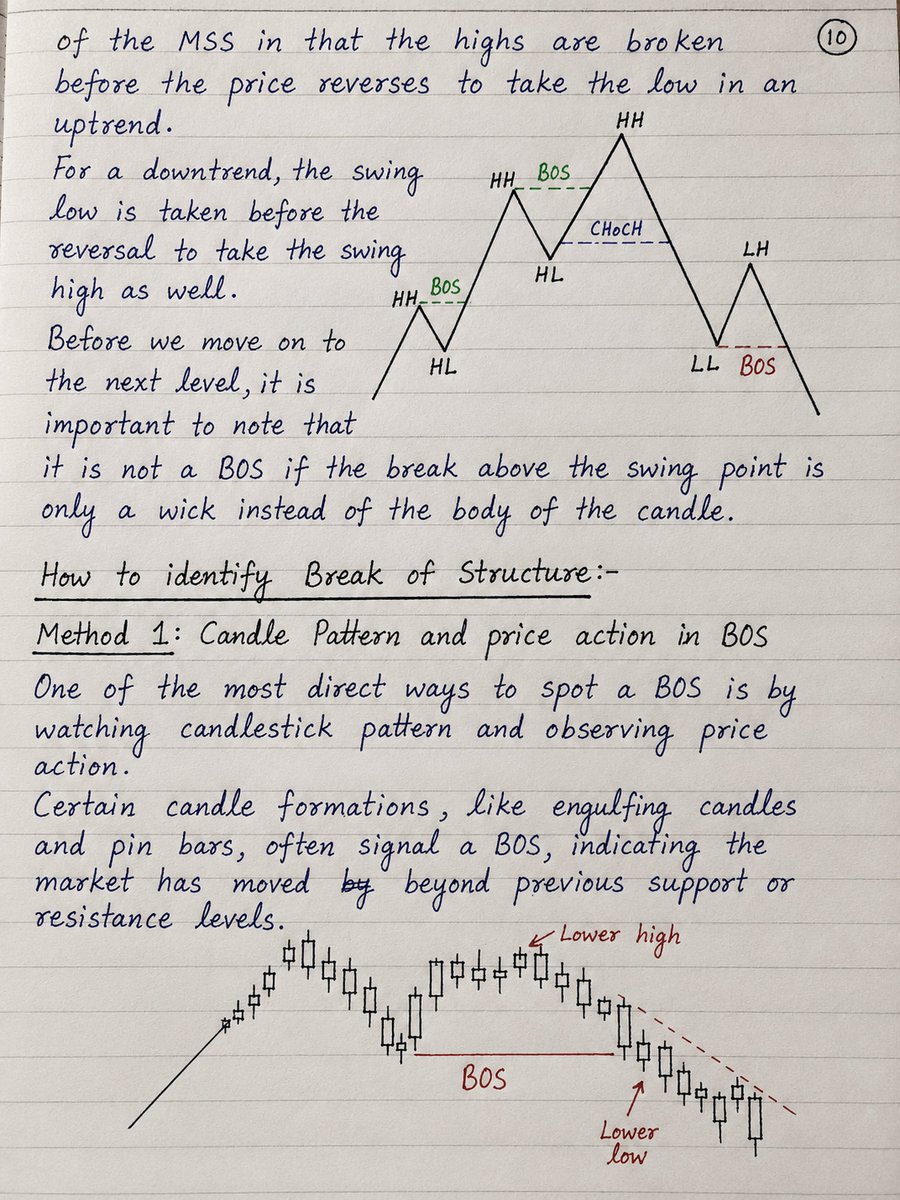 of the MSS in that the highs are broken
10
before the price reverses to take the low in an
uptrend.
For a downtrend, the swing
low is taken before the
reversal to take the swing
high as well.
Before we move on to
the next level, it is
important to note that
HH
HH
BOS
CHoCH
HL
LH
HH
BOS
HL
LL
BOS
it is not a BOS if the break above the swing point is
only a wick instead of the body of the candle.
How to identify Break of Structure:-
Method 1: Candle Pattern and price action in BOS
One of the most direct ways to spot a BOS is by
watching candlestick pattern and observing price
action.
Certain candle formations, like engulfing candles
and pin bars, often signal a BOS, indicating the
market has moved by beyond previous support or
resistance levels.
Lower high
BOS
Lower
low